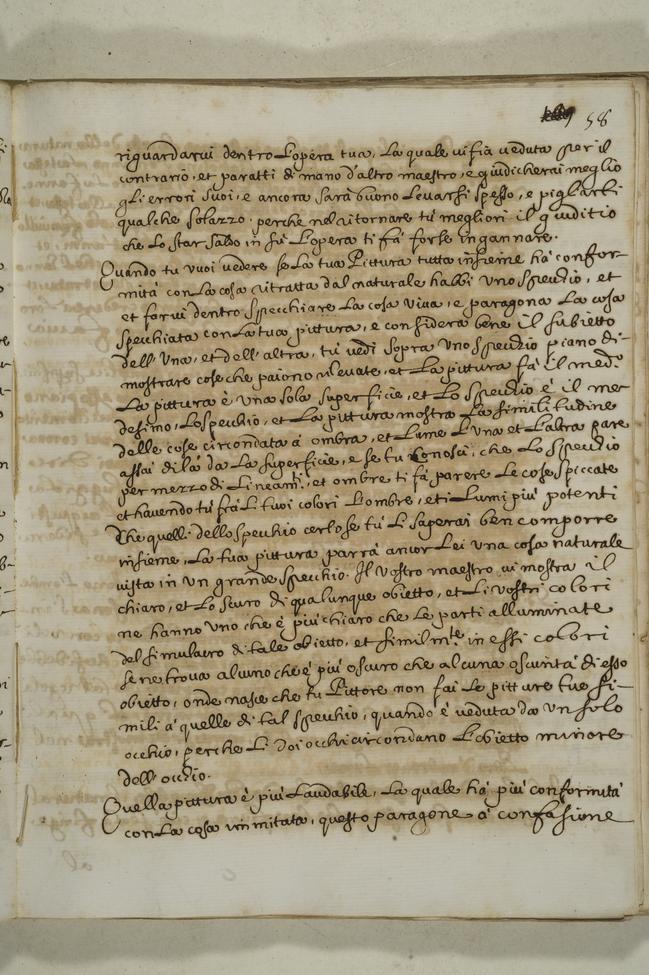 58
riguardarui dentro L'opera tua, La quale ui fia ueduta per il
contrario, et paratti di mano d'altro maestro, e giudicherai meglio
gLi errori suoi, e ancora sarà buono Leuarsi spesso, e pigLiarti
qualche solazzo, perche nel ritornare tù megliori il giuditio
che Lo star saldo in sù L'opera ti fà forte ingannare.
Quando tu uuoi uedere se La tua Pittura tutta insieme hà confor-
mità con La cosa ritratta dal naturale habbi uno specchio, et
et farui dentro specchiare La cosa uiua, e paragona La cosa
specchiata con La tua pittura, e considera bene il subietto
dell'una, et dell'altra, tù uedi sopra uno specchio piano di-
mostrare cose che paiono rileuate, et La pittura fà il med.º
La pittura è una sola superficie, et Lo specchio è il me
desimo, Lo specchio, et La pittura mostra La similitudine
delle cose circondata à ombra, et Lume L'una et L'altra pare
assai di Là da La superficie, e se tu Conosci, che Lo specchio
per mezzo di Lineam.ti, et ombre ti fà parere Le cose spiccate
et hauendo tù frà Li tuoi colori L'ombre, et i Lumi più potenti
Che quelli dello specchio certo se tù Li saperai ben comporre
insieme, La tua pittura parrà ancor Lei una cosa naturale
uista in un grande specchio. Il uostro maestro ui mostra il
chiaro, et Lo scuro di qualunque obietto, et Li uostri colori
ne hanno uno che è più chiaro che Le parti alluminate
del simulacro di tale obietto, et similm.te in essi colori
se ne troua alcuno che è più oscuro che alcuna oscurità di esso
obietto, onde nasce che tu Pittore non fai Le pitture tue si-
mili à quelle di tal specchio, quando è ueduta da un solo
occhio, perche Li doi occhi circondano L'obietto minore
dell'occhio.
Quella pittura è più Laudabile, La quale hà più conformità
con La cosa immitata, questo paragone à confusione